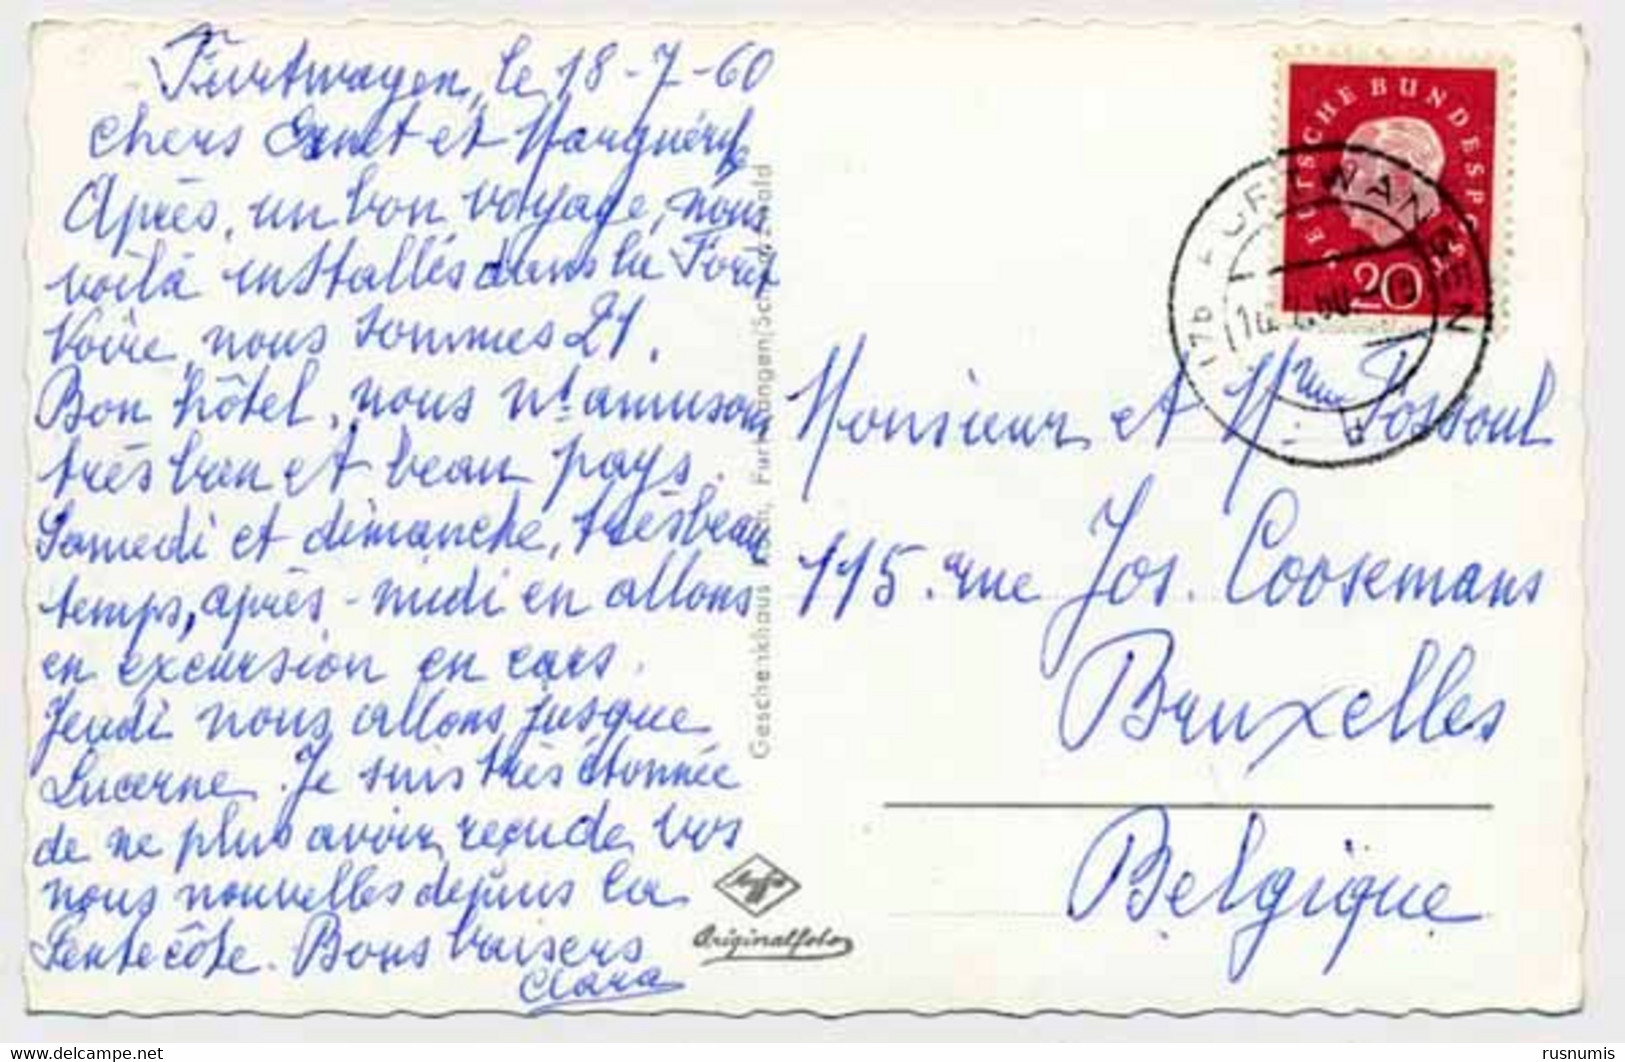 Furtwagen, le 18-7-60
Chers et Marguérite
Après, un bon voyage, nous
voilà installés dans la Forêt
Noire, nous sommes 21.
Bon hôtel, nous n. amusons
très bien et beau pays.
Samedi et dimanche, très beau
temps, après-midi en allons
en excursion en cars.
Jeudi nous allons jusque
Lucerne. Je suis très étonnée
de ne plus avoir reçu de vos
nous nouvelles depuis la
Pentecôte. Bons baisers
Clara
Geschenkhaus Furtwangen/Schwarzwald
Agfa
Originalfoto
DEUTSCHE BUNDESPOST
20
(17b) FURTWANGEN
18.7.60
a
Monsieur et Mme Possoul
115. rue Jos. Coosemans
Bruxelles
Belgique
rusnumis
delcampe.net